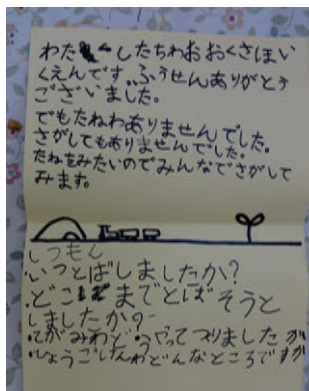 わたくしたちわおおくさほい
くえんです。ふうせんありがとう
ございました。
でもたねわありませんでした。
さがしてもありませんでした。
たねをみたいのでみんなでさがして
みます。
しつもん
いつとばしましたか?
どこまでとばそうと
しましたか
てがみわどうやってつりましたか
しょうごけんわどんなところですか